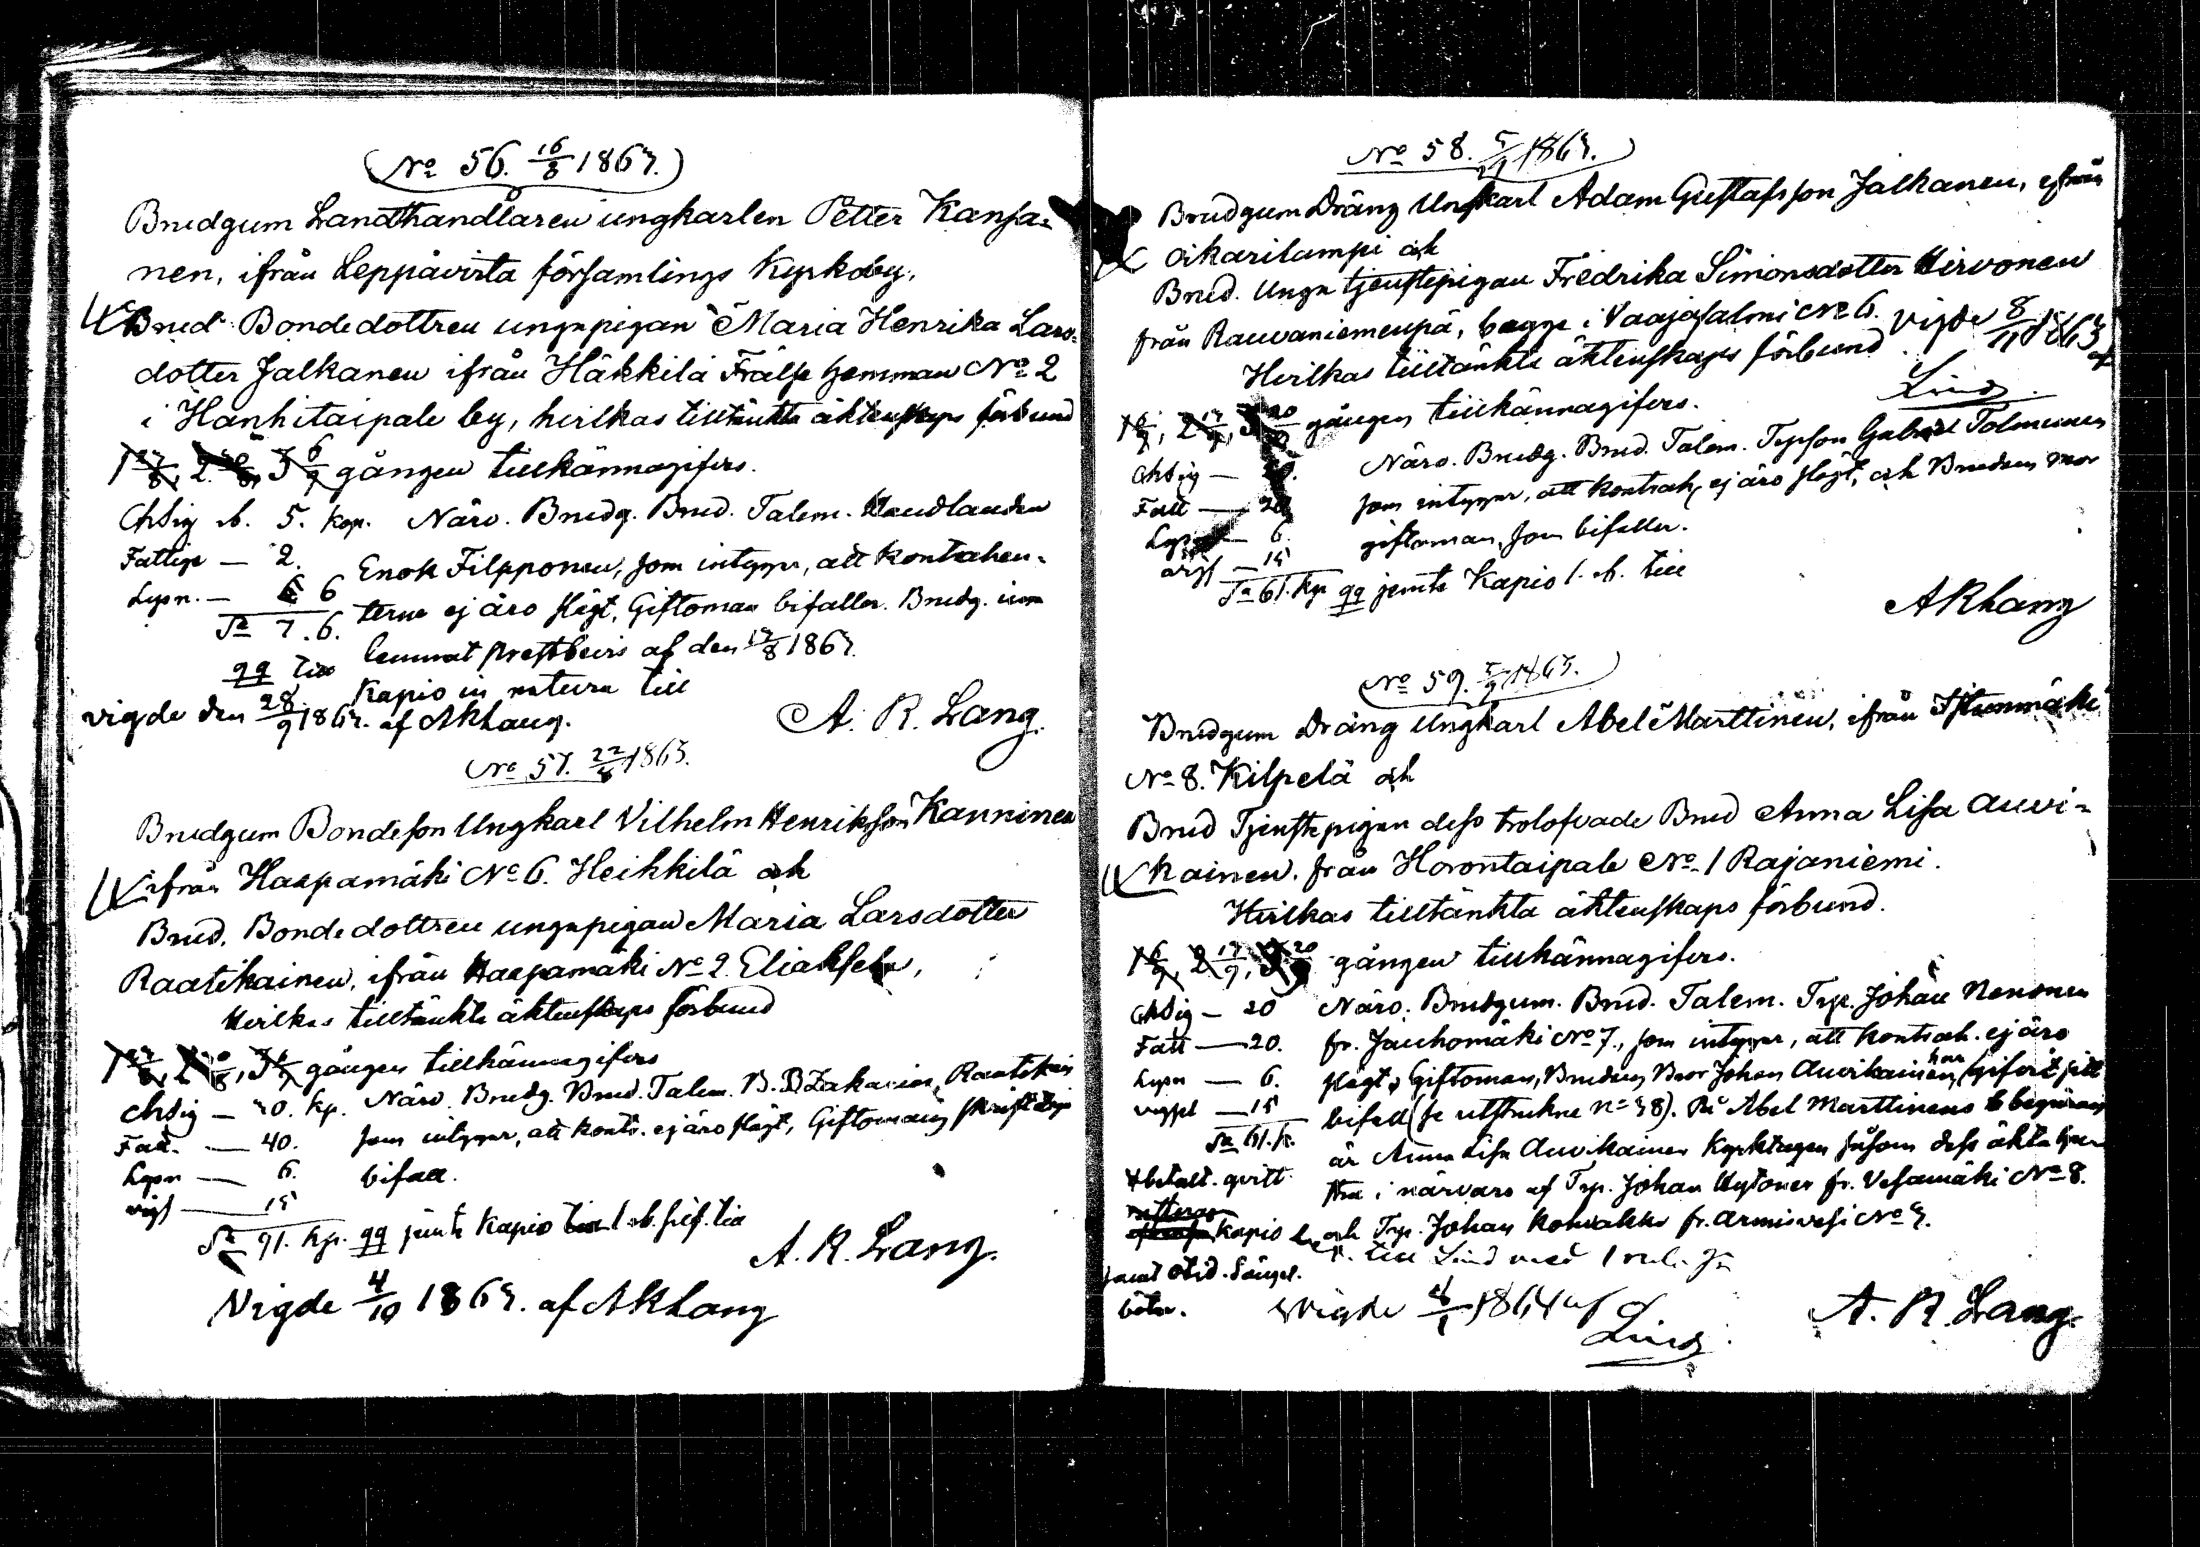 No 56. 16/8 1863.
Brudgum Landthandlaren ungkarlen Petter Kansa=
nen, ifrån Leppävirta församlings Kyrkoby,
Brud Bondedottren ungapigan Maria Henrika Lars=
dotter Jalkanen ifrån Häkkilä Frälse hemman No 2
i Hanhitaipale by, hvilkas tilltänkta äktenskaps förbund
1 23/8, 2 30/8, 3 6/9 gången tillkännagifves.
Ahsig rb. 5. kop. Närv. Brudg. Brud. Talem. Handlanden
Fattige — 2. Enok Filpponen, som intygar, att kontrahen-
Lysn. — 6 terne ej äro slägt, Giftoman bifaller. Brudg. inn
Sa 7. 6. lemnat prestbevis af den 13/8 1863.
qq till Kapio in natura till
vigde den 28/9 1863. af ARLang. A. R. Lang.
No 57. 22/8 1863.
Brudgum Bondeson Ungkarl Vilhelm Henriksson Kanninen
ifrån Haapamäki No 6. Heikkilä och
Brud. Bondedottren ungapigan Maria Larsdotter
Raatikainen, ifrån Haapamäki No 2 Eliaksela,
Hvilkas tilltänkta äktenskaps förbund
1 23/8, 2 30/8, 3 6/9 gången tillkännagifves
Ahsig — 30. Kp. Närv. Brudg. Brud. Talem. B. Zakarias Raatikain
Fatt. — 40. som intygar, att kontr. ej äro slägt, Giftomans skriftliga
Lysn — 6. bifall.
vigs — 15
Sa 91. Kp. qq jemte Kapio 1 rb. silf. till
A. R. Lang.
Vigde 4/10 1863. af ARLang
No 58. 5/9 1863.
Brudgum Dräng Ungkarl Adam Gustafsson Jalkanen, ifrån
Oikarilampi och
Brud. Unga tjenstepigan Fredrika Simonsdotter Hirvonen
från Rauvaniemenpä, begge i Vaajasalmi No 6. Vigde 8/11 1863 af
Hvilkas tilltänkta äktenskaps förbund Lind.
1 6/9, 2 13/9, 3 20/9 gången tillkännagifves.
Ahsig — 20. Närv. Brudg. Brud. Talem. Torpson Gabriel Tolmunen
Fatt — 20 som intygar, att kontrah. ej äro slägt, och Brudens mor
Lysn — 6. giftoman, som bifaller.
vigs — 15
Sa 61. Kp qq jemte Kapio 1. rb. till
ARLang
No 59. 5/9 1863.
Brudgum Dräng Ungkarl Abel Marttinen, ifrån Istunmäki
No 8. Kilpelä och
Brud Tjenstepigan dess trolofvade Brud Anna Lisa Auvi=
kainen. från Horontaipale No 1 Rajaniemi.
Hvilkas tilltänkta äktenskaps förbund.
1 6/9, 2 13/9, 3 20/9 gången tillkännagifves.
Ahsig — 20 Närv. Brudgum. Brud. Talem. Trp. Johan Nenonen
Fatt — 20. fr. Jauhomäki No 7., som intygar, att kontrah. ej äro
Lysn — 6. slägt, Giftoman, Brudens Bror Johan Auvikainen har gifvit sitt
vigsel — 15 bifall (se utstrukne no 38). På Abel Marttinens begäran
Sa 61. k. är Anna Lisa Auvikainen kyrktagen såsom dess äkta hu-
betalt. qvitt stru i närvaro af Trp. Johan Hytönen fr. Vesamäki No 8.
Kapio och Trp. Johan Korhakko fr. Armisvesi No 3.
till Lind med 1 rub.
samt otid. Sängel.
böter. Vigde 4/1 1864 af Lind. A. R. Lang.